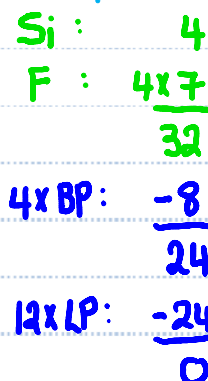 Si : 4
F : 4x7
32
4x BP: -8
24
12x LP: -24
0